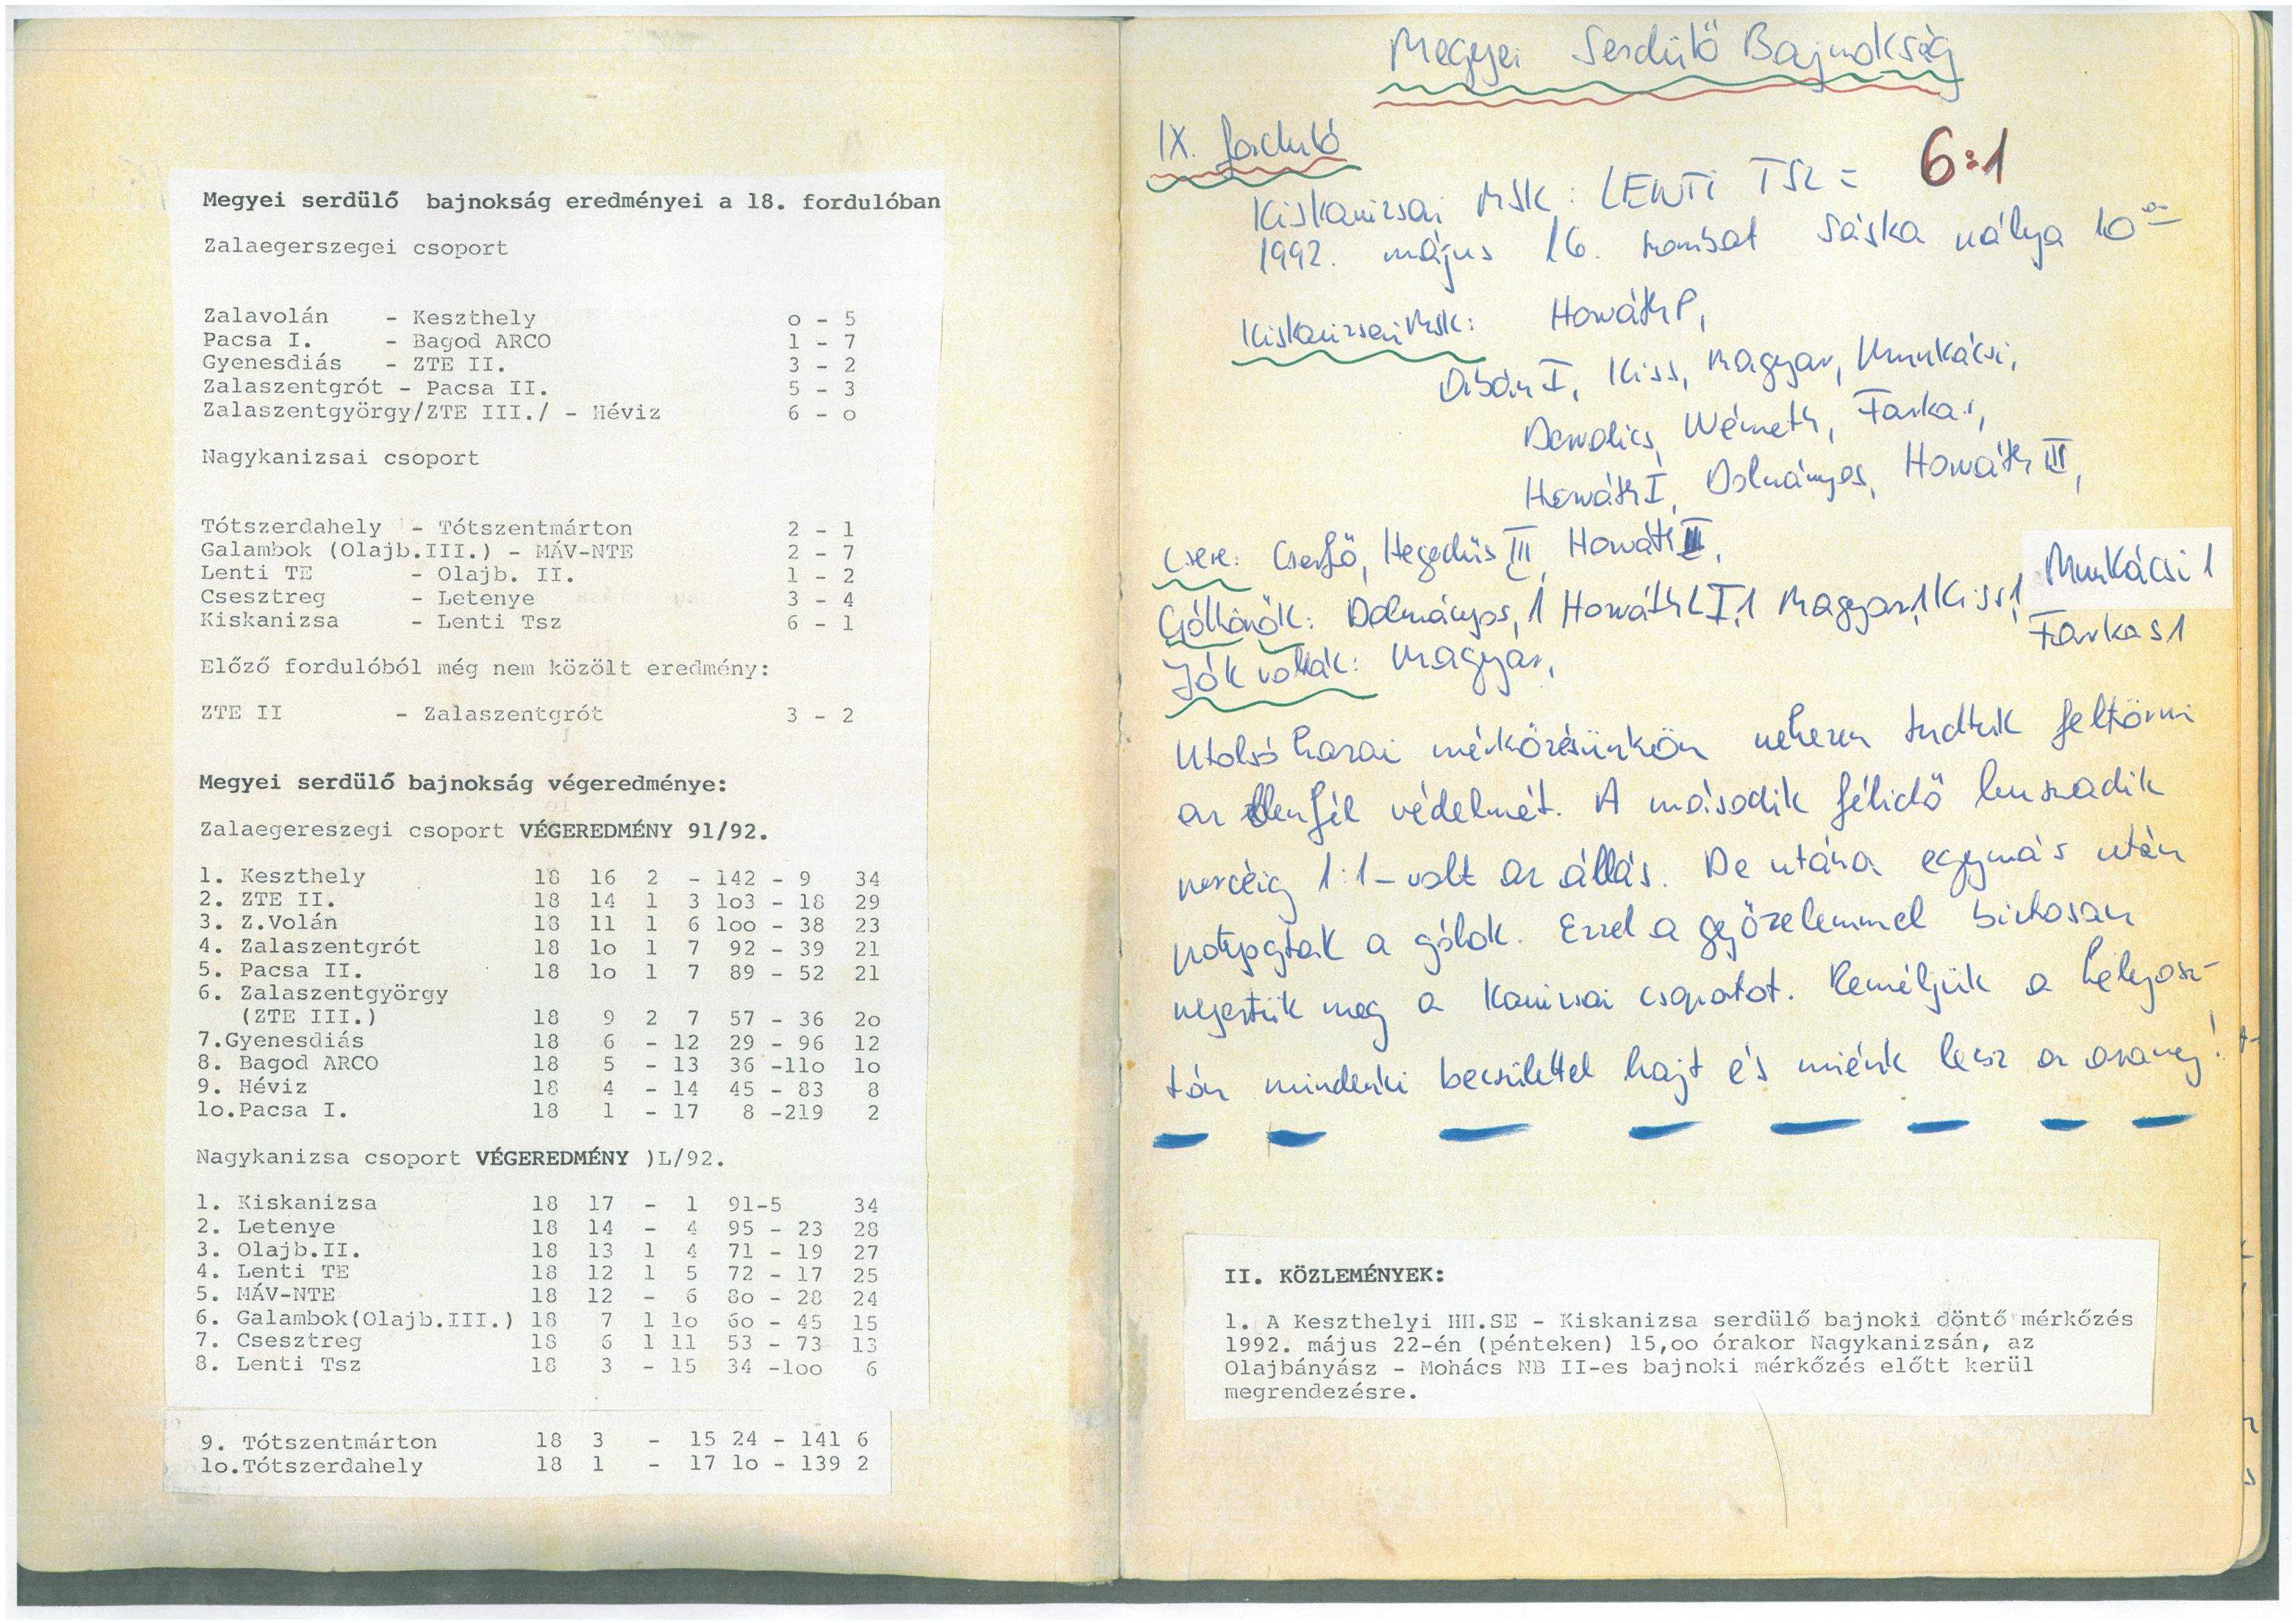 Megyei serdülő bajnokság eredményei a 18. fordulóban
Zalaegerszegei csoport
Zalavolán - Keszthely o - 5
Pacsa I. - Bagod ARCO 1 - 7
Gyenesdiás - ZTE II. 3 - 2
Zalaszentgrót - Pacsa II. 5 - 3
Zalaszentgyörgy/ZTE III./ - Héviz 6 - o
Nagykanizsai csoport
Tótszerdahely - Tótszentmárton 2 - 1
Galambok (Olajb.III.) - MÁV-NTE 2 - 7
Lenti TE - Olajb. II. 1 - 2
Csesztreg - Letenye 3 - 4
Kiskanizsa - Lenti Tsz 6 - 1
Előző fordulóból még nem közölt eredmény:
ZTE II - Zalaszentgrót 3 - 2
Megyei serdülő bajnokság végeredménye:
Zalaegereszegi csoport VÉGEREDMÉNY 91/92.
1. Keszthely 18 16 2 - 142 - 9 34
2. ZTE II. 18 14 1 3 1o3 - 18 29
3. Z.Volán 18 11 1 6 1oo - 38 23
4. Zalaszentgrót 18 1o 1 7 92 - 39 21
5. Pacsa II. 18 1o 1 7 89 - 52 21
6. Zalaszentgyörgy
(ZTE III.) 18 9 2 7 57 - 36 2o
7.Gyenesdiás 18 6 - 12 29 - 96 12
8. Bagod ARCO 18 5 - 13 36 -11o 1o
9. Héviz 18 4 - 14 45 - 83 8
1o.Pacsa I. 18 1 - 17 8 -219 2
Nagykanizsa csoport VÉGEREDMÉNY )L/92.
1. Kiskanizsa 18 17 - 1 91-5 34
2. Letenye 18 14 - 4 95 - 23 28
3. Olajb.II. 18 13 1 4 71 - 19 27
4. Lenti TE 18 12 1 5 72 - 17 25
5. MÁV-NTE 18 12 - 6 8o - 28 24
6. Galambok(Olajb.III.) 18 7 1 1o 6o - 45 15
7. Csesztreg 18 6 1 11 53 - 73 13
8. Lenti Tsz 18 3 - 15 34 -1oo 6
9. Tótszentmárton 18 3 - 15 24 - 141 6
1o.Tótszerdahely 18 1 - 17 1o - 139 2
Megyei Serdülő Bajnokság
IX. forduló
Kiskanizsai MSK : LENTI TSZ = 6:1
1992. május 16. szombat Sáska pálya 10⁰⁰
Kiskanizsai Msk: Horváth P,
Kiss, Magyar, Munkácsi,
Németh, Farkas,
Horváth I, Dolmányos, Horváth III,
Csere: Cserfő, Hegedüs III, Horváth II,
Góllövők: Dolmányos, 1 Horváth I, 1 Magyar, 1 Kiss 1, Munkácsi 1
Farkas 1
Jók voltak: Magyar,
Utolsó hazai mérkőzésünkön nehezen tudtuk feltörni
az ellenfél védelmét. A második félidő huszadik
percéig 1:1-volt az állás. De utána egymás után
potyogtak a gólok. Ezzel a győzelemmel biztosan
nyertük meg a kanizsai csoportot. Reméljük a helyosz-
tón mindenki becsülettel hajt és miénk lesz az arany!
II. KÖZLEMÉNYEK:
1. A Keszthelyi HH.SE - Kiskanizsa serdülő bajnoki döntő mérkőzés
1992. május 22-én (pénteken) 15,oo órakor Nagykanizsán, az
Olajbányász - Mohács NB II-es bajnoki mérkőzés előtt kerül
megrendezésre.